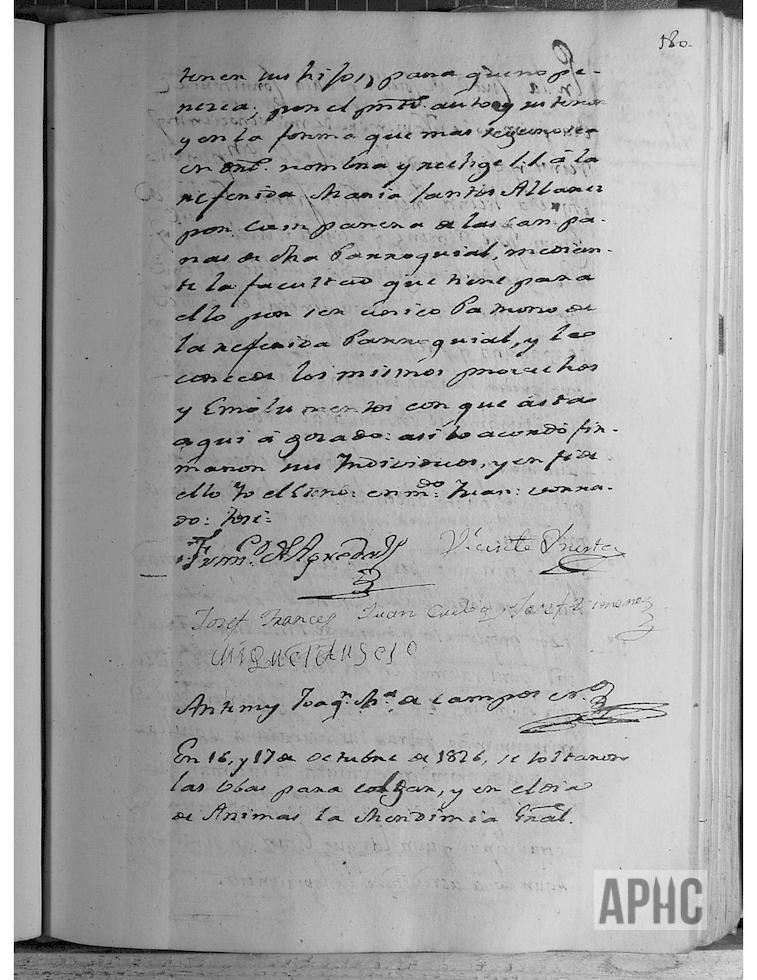 180.
tenen sus hijos, para que no pe-
rezca: por el pnte. auto y su tenor
y en la forma que mas
en dro. nombra y S.S. á la
referida Maria Santos Albanez
por Campanera de las campa-
nas de dha Parroquial, median-
te la facultad que tiene para
ello por ser único Patrono de
la referida Parroquial, y le
concede los mismos provechos
y Emolumentos con que ásta
aqui á gozado: asi lo acordó fir-
maron sus Individuos, y en fe de
ello Yo el Escno: enmdo: Juan: borra-
do: José:
Vicente Puerta
Josef Frances Juan Cueba Josef Ximenez
MIGUEL AUSEJO
Antemy Joaqn. Ma. de Campos
En 16, y 17 de Octubre de 1826, se soltaron
las Ubas para colgar, y en el dia
de Animas la Bendimia Gral.
APHC